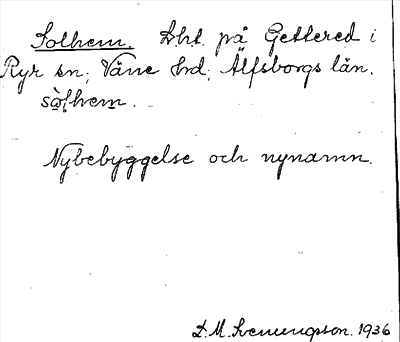 Solhem. Lht. på Gettered i
Ryr sn; Väne hrd; Älfsborgs län.
sòlhem.
Nybebyggelse och nynamn.
D.M. Svenungsson. 1936